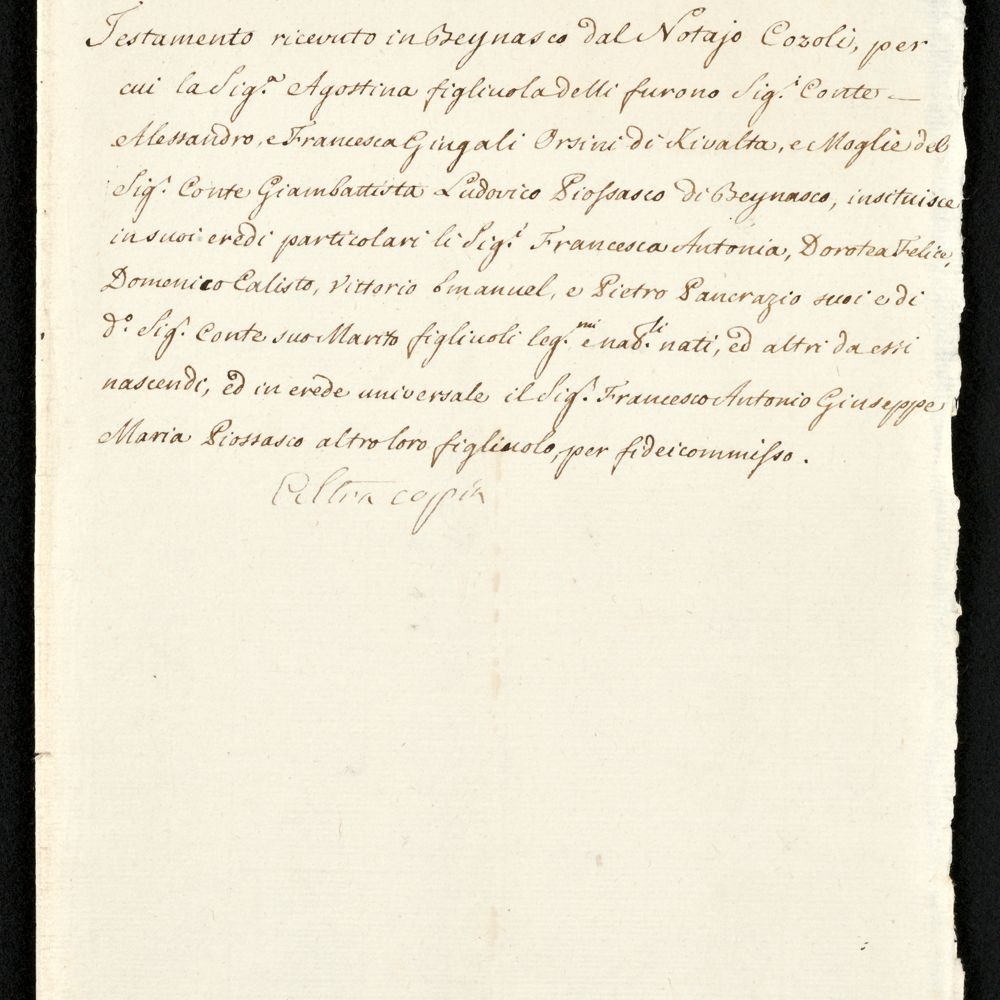 Testamento ricevuto in Beynasco dal Notajo Cozoli, per
cui la Sig.ᵃ Agostina figliuola delli furono Sig.ⁱ Conte —
Alessandro, e Francesca Gingali Orsini di Rivalta, e Moglie del
Sig.ʳ Conte Giambattista Ludovico Piossasco di Beynasco, insituisce
in suoi eredi particolari li Sig.ⁱ Francesca Antonia, Dorotea Felice,
Domenico Calisto, Vittorio Emanuel, e Pietro Pancrazio suoi e di
d.° Sig.ʳ Conte suo Marito figliuoli leg.ᵐⁱ e nad.ˡⁱ nati, ed altri da essi
nascendi, ed in erede universale il Sig.ʳ Francesco Antonio Giuseppe
Maria Piossasco altro loro figliuolo, per fideicommisso.
altra coppia